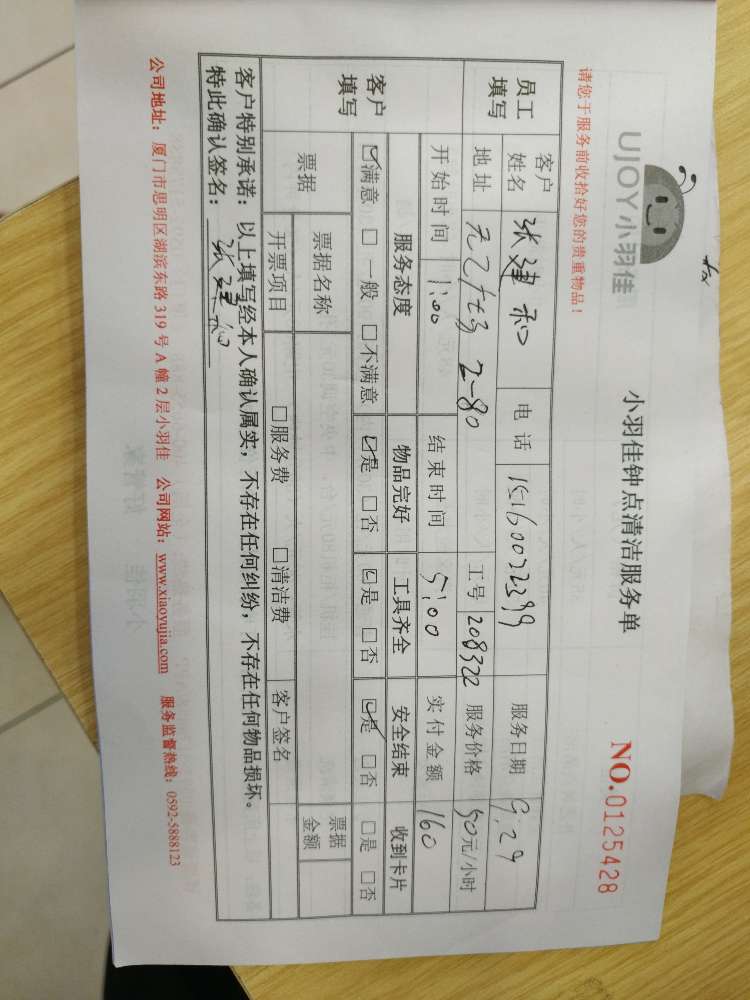 UJOY小羽佳
小羽佳钟点清洁服务单
NO.0125428
请您于服务前收拾好您的贵重物品！
员工填写 客户姓名 张建和 电话 服务日期 9.29
地址 2-80 工号 208322 服务价格 50元/小时
开始时间 1:00 结束时间 5:00 实付金额 160
客户填写 服务态度 物品完好 工具齐全 安全结束 收到卡片
☑满意 □一般 □不满意 ☑是 □否 ☑是 □否 ☑是 □否 □是 □否
票据 票据名称 票据金额
开票项目 □服务费 □清洁费 客户签名
客户特别承诺：以上填写经本人确认属实，不存在任何纠纷，不存在任何物品损坏。
特此确认签名：张建和
公司地址：厦门市思明区湖滨东路319号A幢2层小羽佳 公司网站：www.xiaoyujia.com 服务监督热线：0592-5888123